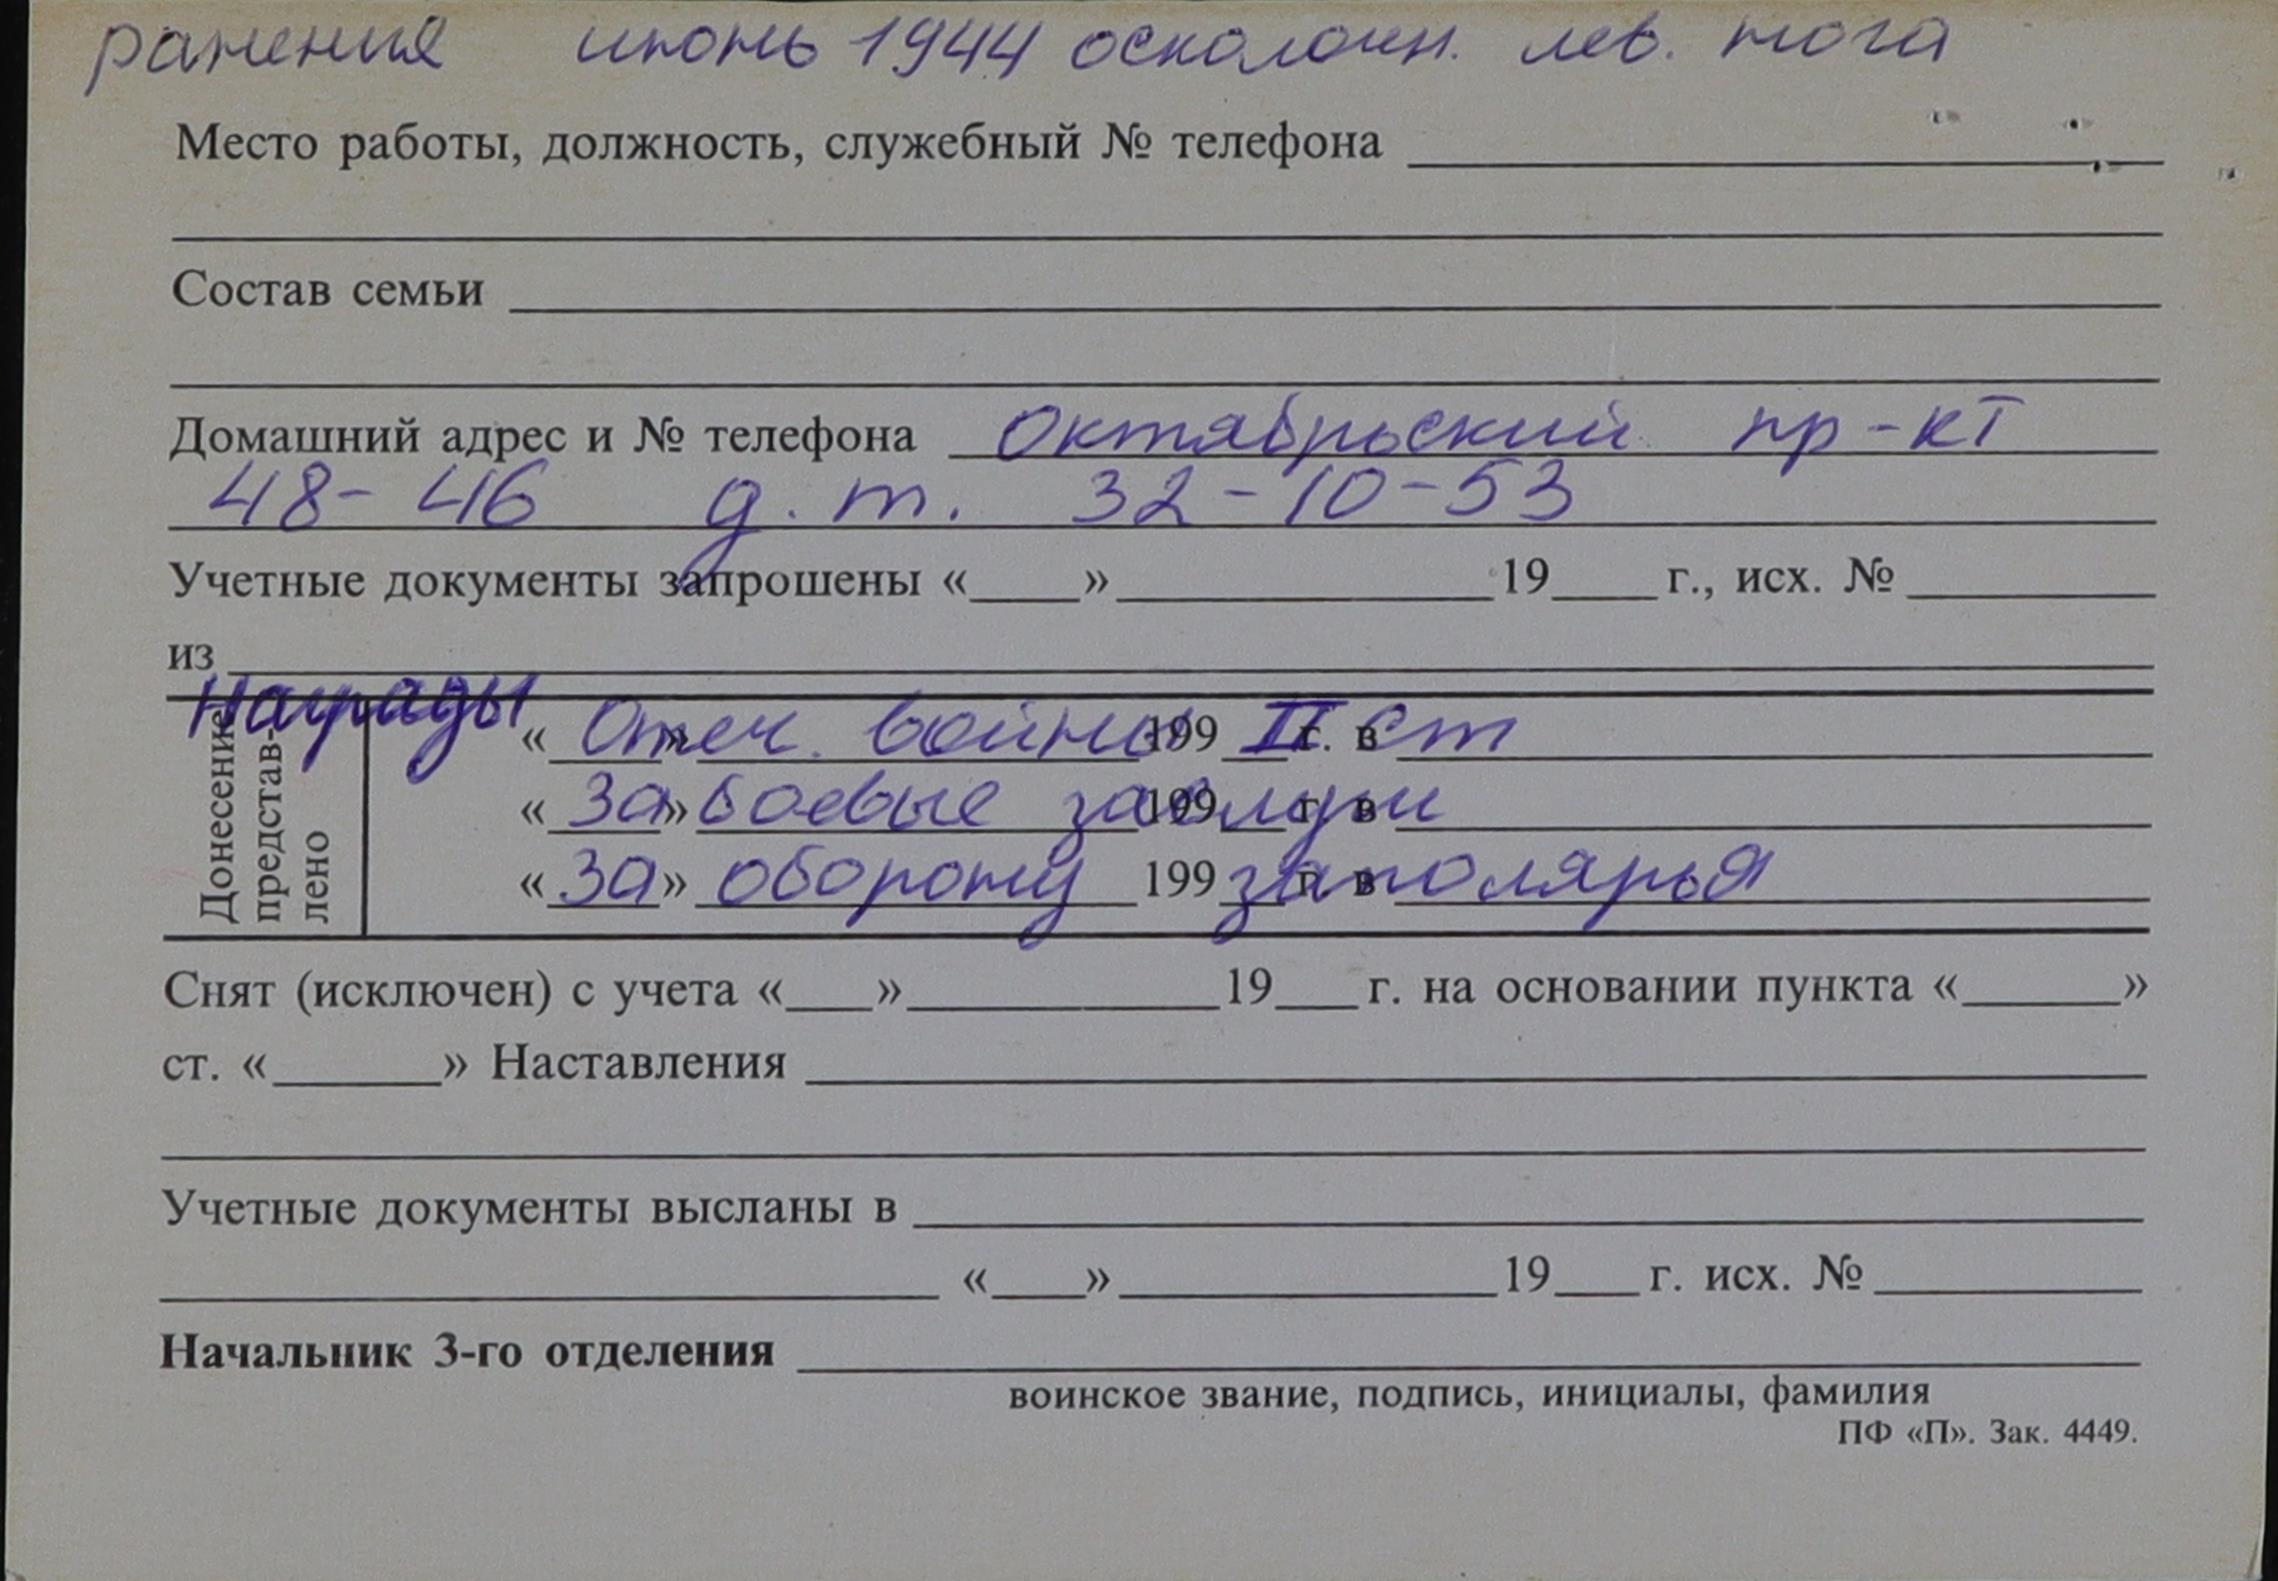 ранения июнь 1944 осколочн. лев. нога
Место работы, должность, служебный № телефона
Состав семьи
Домашний адрес и № телефона Октябрьский пр-кт
48-46 д.т. 32-10-53
Учетные документы запрошены «____»______________19____г., исх. №
из
Награды
Донесение представ-
лено
« Отеч. войны 199 II г. в ст
« За » боевые заслуги 199 г. в
« За » оборону 199 заполярья г. в
Снят (исключен) с учета «___»____________19___г. на основании пункта «______»
ст. «______» Наставления
Учетные документы высланы в
«___»______________19___г. исх. №
Начальник 3-го отделения
воинское звание, подпись, инициалы, фамилия
ПФ «П». Зак. 4449.